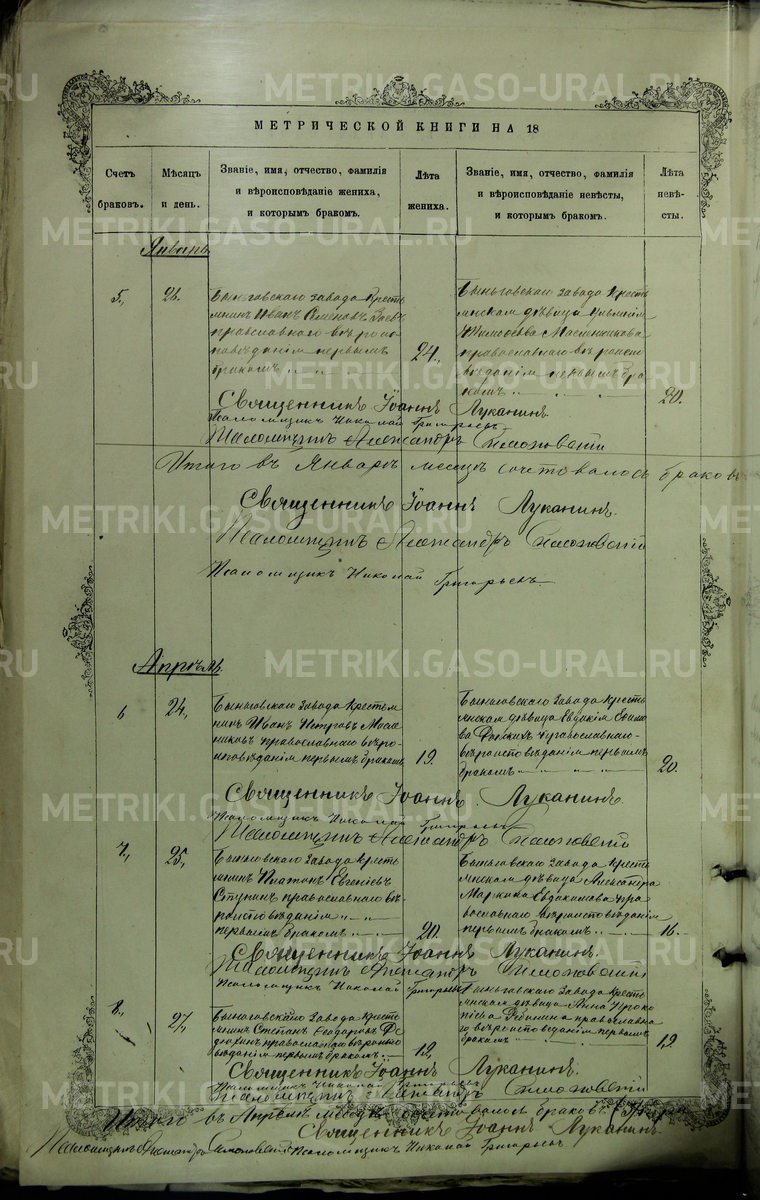 METRIKI.GASO-URAL.RU
МЕТРИЧЕСКОЙ КНИГИ НА 18
Счетъ браковъ.
Мѣсяцъ и день.
Званіе, имя, отчество, фамилія
и вѣроисповѣданіе жениха,
и которымъ бракомъ.
Лѣта жениха.
Званіе, имя, отчество, фамилія
и вѣроисповѣданіе невѣсты,
и которымъ бракомъ.
Лѣта невѣ-
сты.
Январь
5.
26.
Быньговскаго завода кресть
янинъ Иванъ
православнаго вѣроис
повѣданія первымъ
бракомъ
24.
Быньговскаго завода кресть
янская дѣвица
православнаго вѣроиспо
вѣданія первымъ бра
комъ
20.
Священникъ Іоаннъ Луканинъ.
Псаломщикъ Николай Григорьевъ
Псаломщикъ Александръ
Итого въ Январѣ месяцѣ сочетовалось браковъ
Священникъ Іоаннъ Луканинъ.
Псаломщикъ Александръ
Псаломщикъ Николай Григорьевъ
Апрѣль
6
24.
Быньговскаго завода крестья
нинъ Иванъ Петровъ Маслен
никовъ православнаго вѣро
исповѣданія первымъ бракомъ
19.
Быньговскаго завода кресть
янская дѣвица Евдокія
православнаго
вѣроисповѣданія первымъ
бракомъ
20.
Священникъ Іоаннъ Луканинъ.
Псаломщикъ Николай Григорьевъ
Псаломщикъ Александръ
7.
25.
Быньговскаго завода кресть
янинъ Платонъ Евгеніевъ
православнаго вѣ
роисповѣданія
первымъ бракомъ
20.
Быньговскаго завода кресть
янская дѣвица Александра
Маркина Евдокимова пра
вославнаго вѣроисповѣданія
первымъ бракомъ
16.
Священникъ Іоаннъ Луканинъ.
Псаломщикъ Александръ
Псаломщикъ Николай Григорьевъ
8.
27.
Быньговскаго завода кресть
янинъ Степанъ Ѳеодоровъ
православнаго вѣроиспо
вѣданія первымъ бракомъ
19.
Быньговскаго завода кресть
янская дѣвица Анна Проко
піева православна
го вѣроисповеданія первымъ
бракомъ
19
Священникъ Іоаннъ Луканинъ.
Псаломщикъ Николай Григорьевъ
Псаломщикъ Александръ
Итого въ Апрѣлѣ месяцѣ сочетовалось браковъ
Священникъ Іоаннъ Луканинъ
Псаломщикъ Александръ Псаломщикъ Николай Григорьевъ